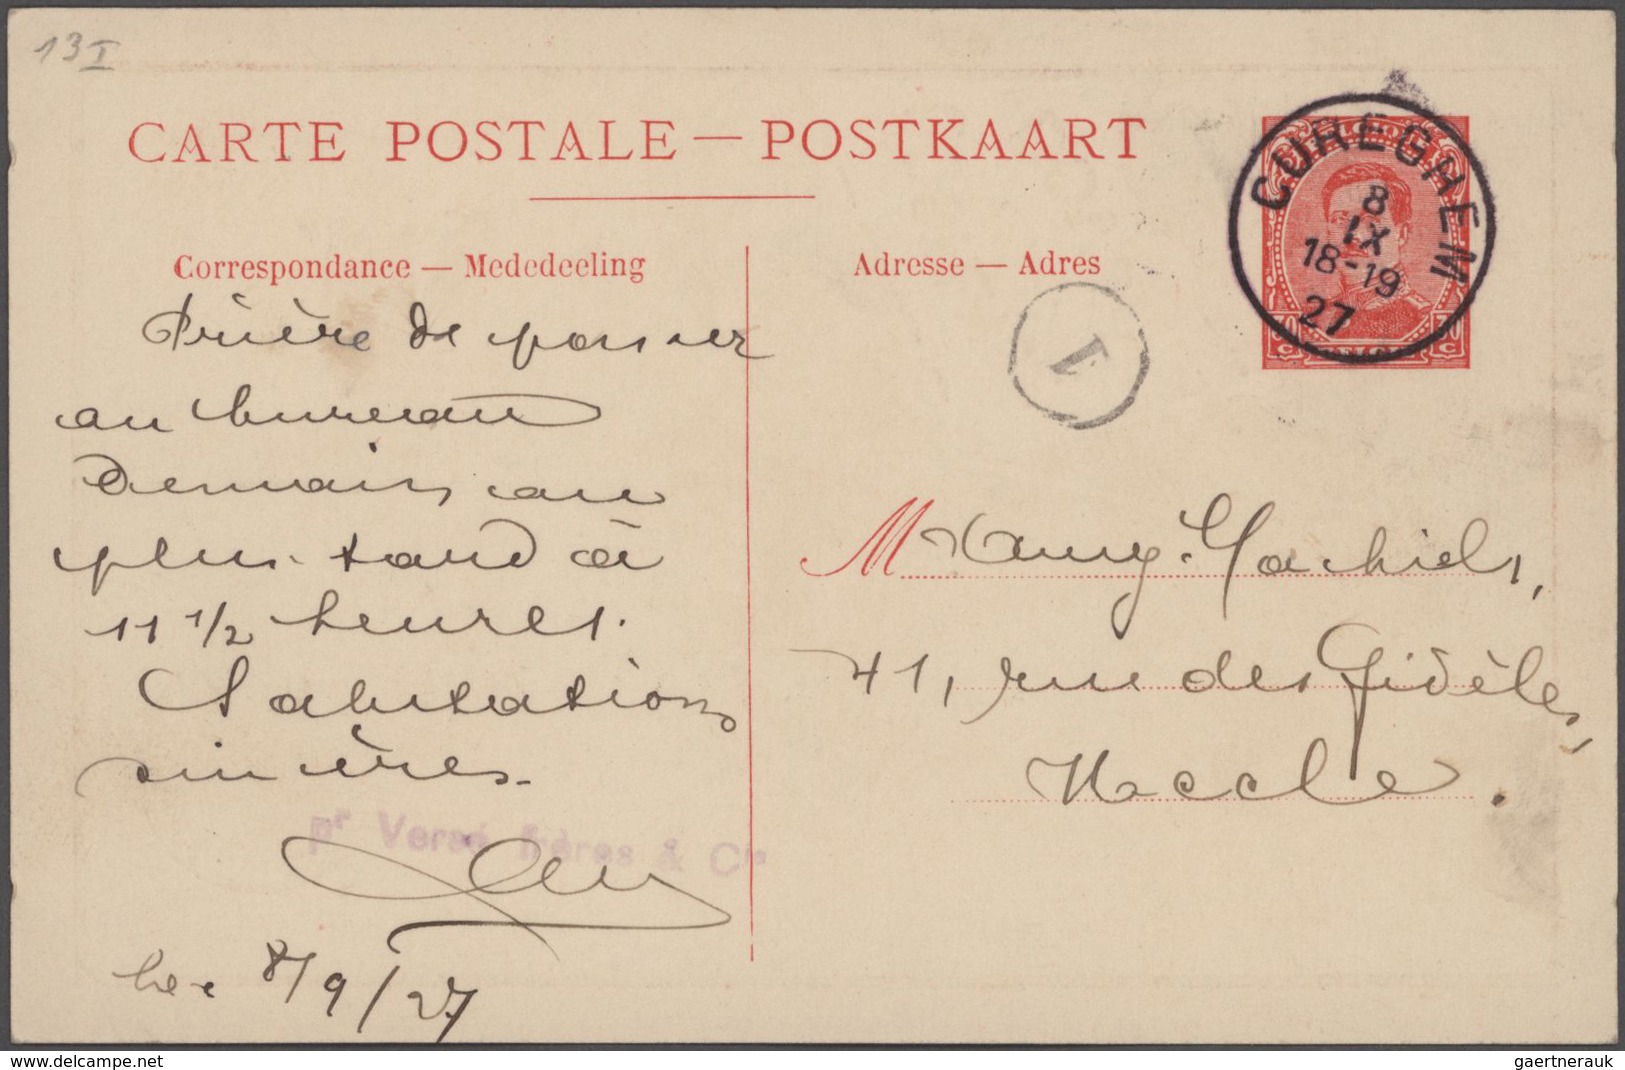 13 I
CARTE POSTALE — POSTKAART
CUREGHEM
8
IX
18-19
27
BELGIQUE
30 C
30 C
Correspondance — Mededeeling
Prière de passer
au bureau
demain au
plus tard à
11 1/2 heures.
Salutations
sincères.
pr Versé frères & Cie
le 8/9/27
Adresse — Adres
1
M Machiels,
41, rue des Fidèles,
Uccle.
gaertnerauk
Powered by www.delcampe.net